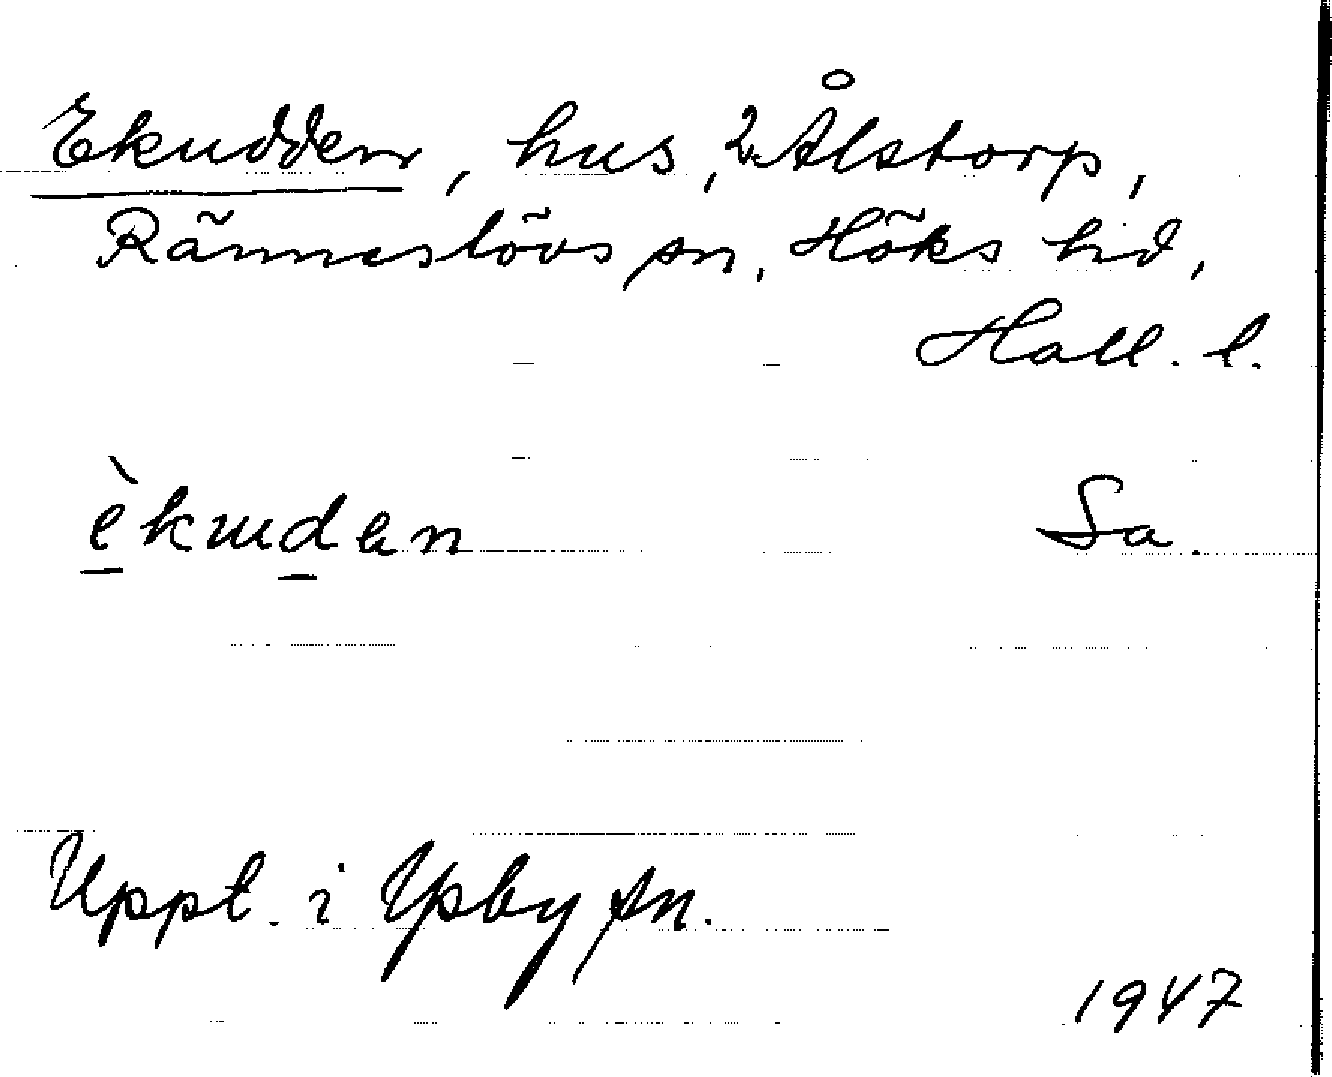 Ekudden, hus, 2 Ålstorp,
Ränneslövs sn, Höks hd,
Hall. l.
èkudan Sa.
Uppt. i Ysby sn.
1947